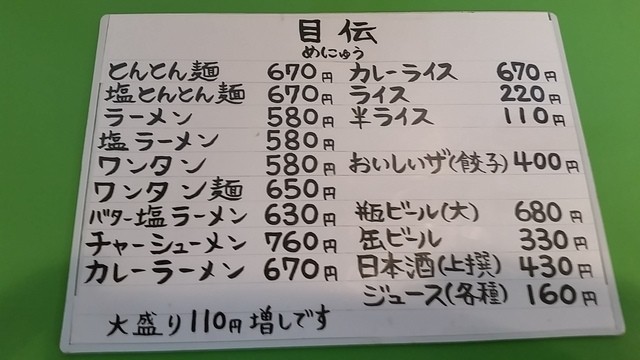 目伝
めにゅう
とんとん麺 670円
塩とんとん麺 670円
ラーメン 580円
塩ラーメン 580円
ワンタン 580円
ワンタン麺 650円
バター塩ラーメン 630円
チャーシューメン 760円
カレーラーメン 670円
カレーライス 670円
ライス 220円
半ライス 110円
おいしいザ(餃子) 400円
瓶ビール(大) 680円
缶ビール 330円
日本酒(上撰) 430円
ジュース(各種) 160円
大盛り110円増しです